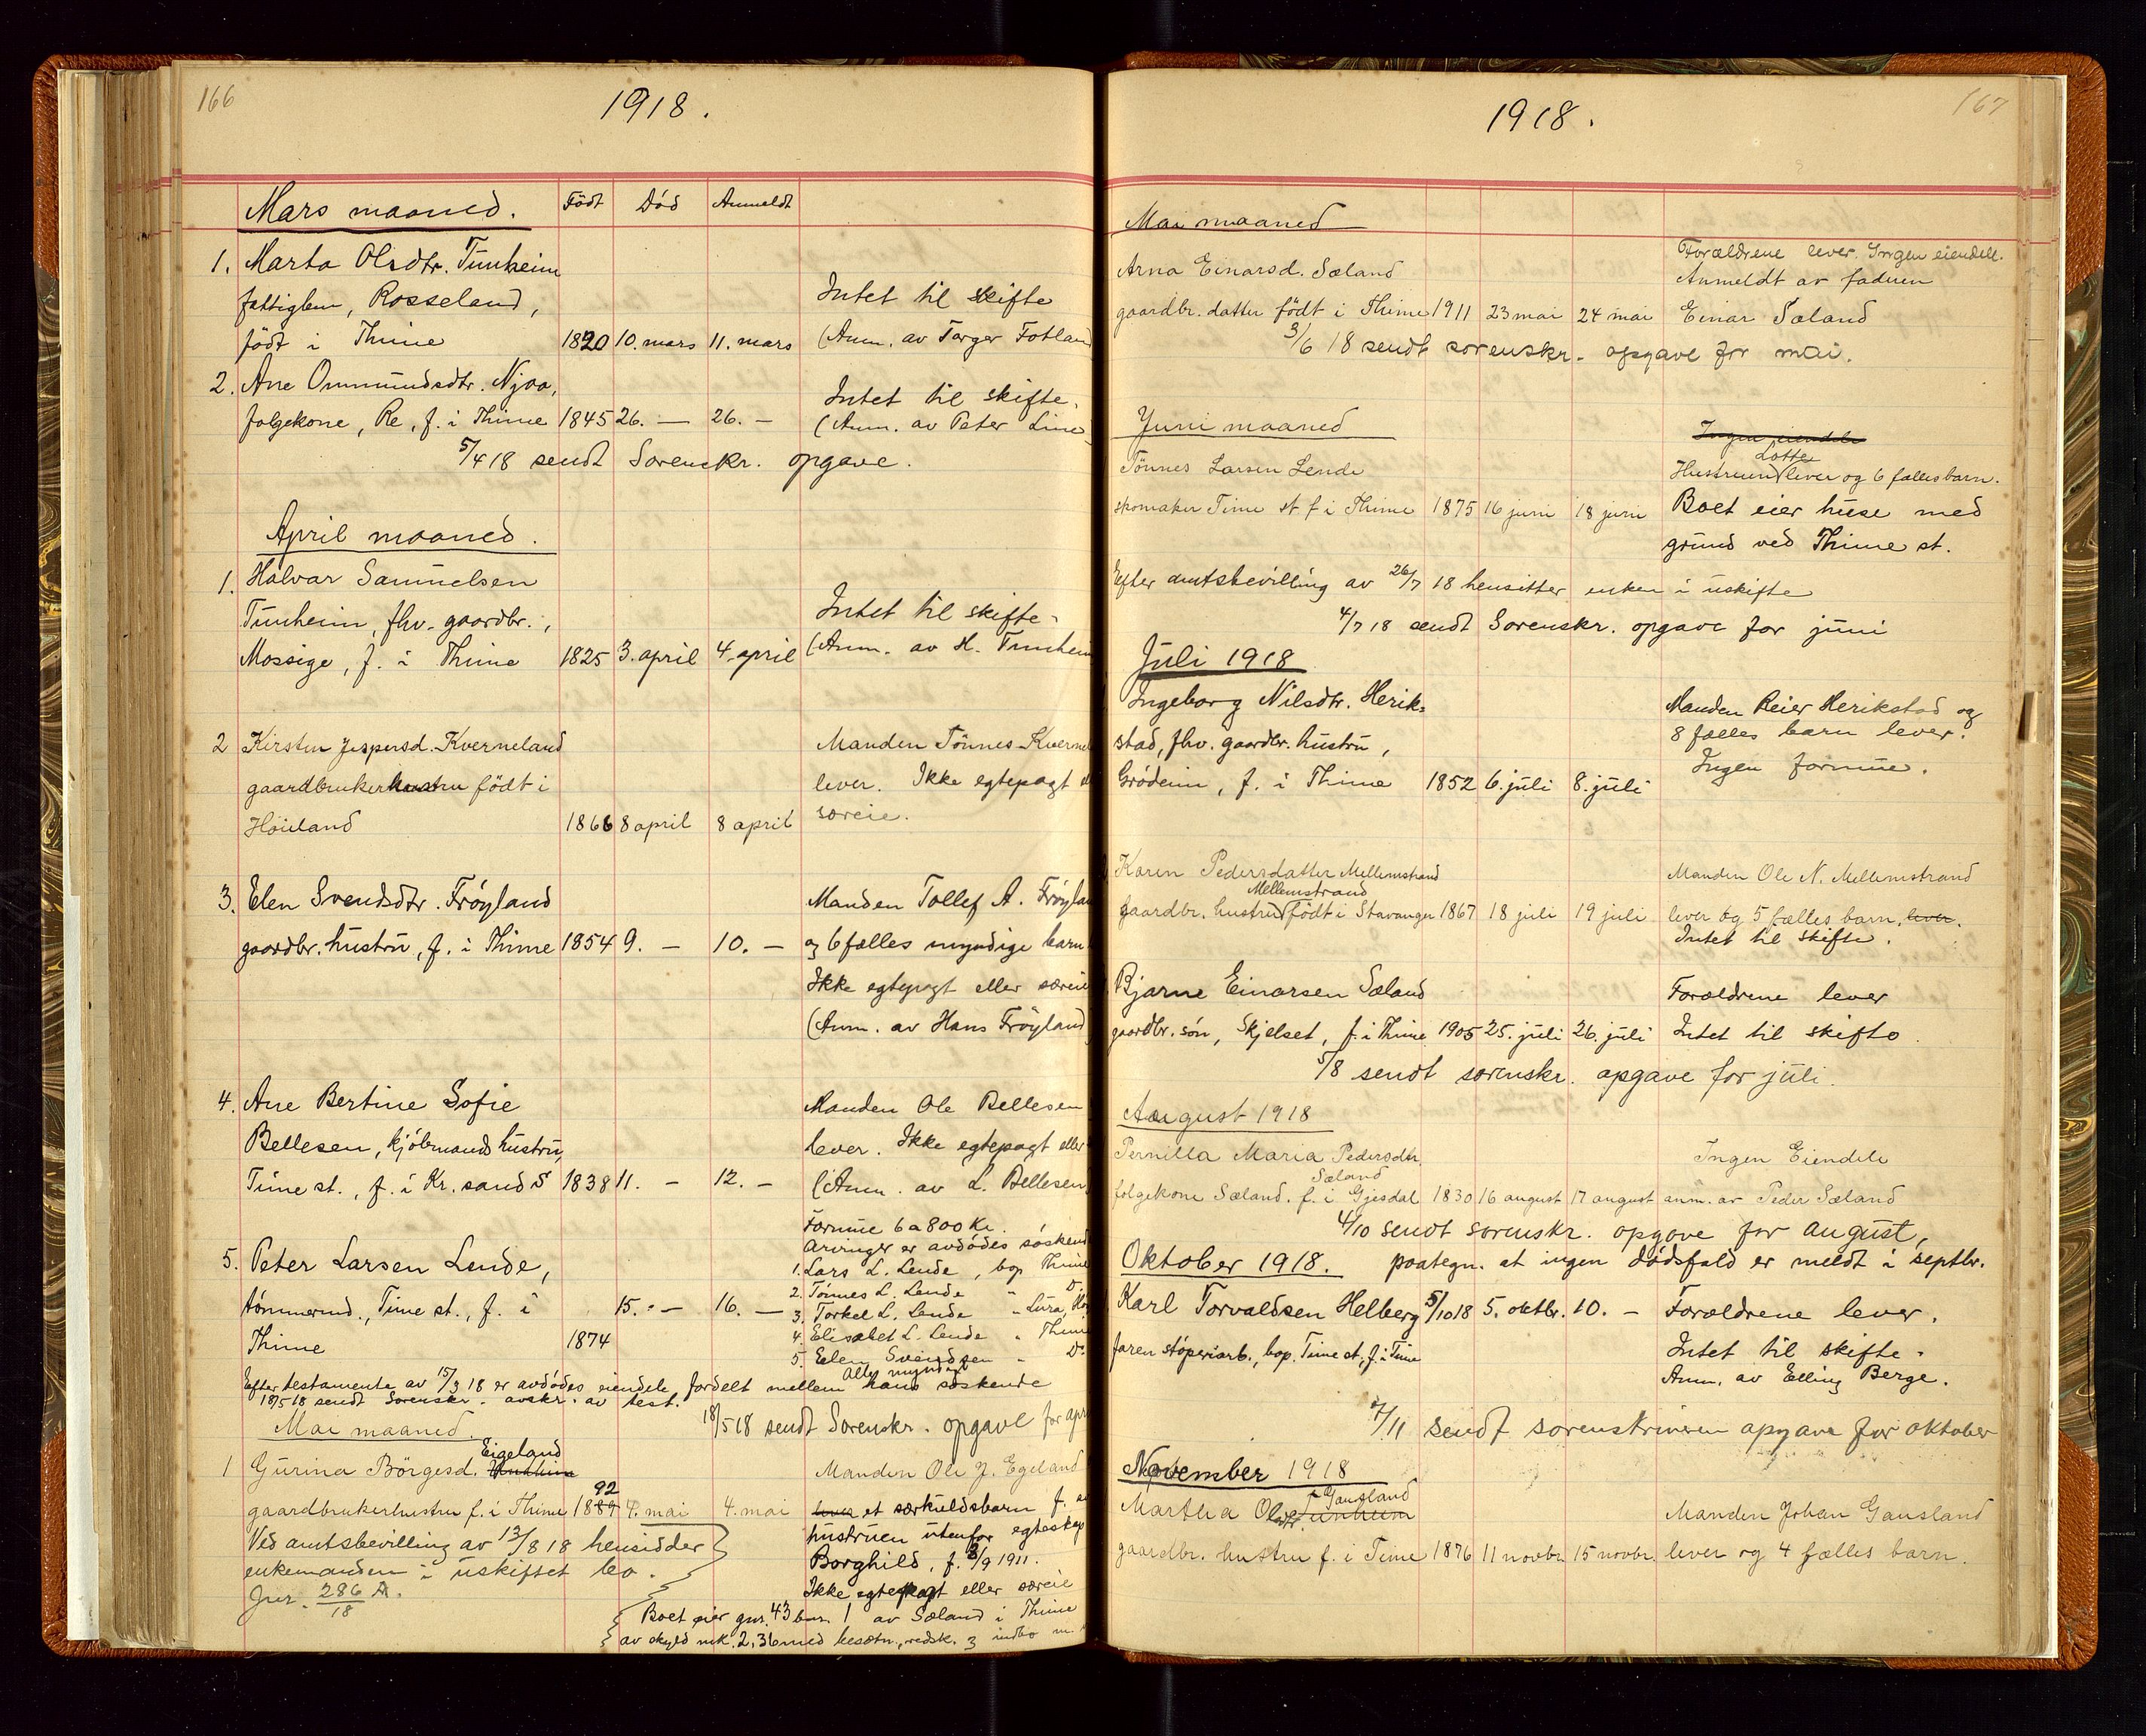 166
1918.
Mars maaned. Født Død Anmeldt
1. Marta Olsdtr. Tunheim
fattiglem, Rosseland, Intet til skifte
født i Thime 1820 10. mars 11. mars (Anm. av Torger Fotland
2. Ane Ommundsdtr. Njaa, Intet til skifte.
folgekone, Re, f. i Thime 1845 26. — 26. — (Anm. av Peter Line
5/4 18 sendt Sorenskr. opgave.
April maaned.
1. Halvar Samuelsen
Tunheim, fhv. gaardbr., Intet til skifte.
Mossige, f. i Thime 1825 3. april 4. april (Anm. av H. Tunheim
2 Kirsten Jespersd. Kverneland Manden Tønnes Kvernel
gaardbrukerhustru født i lever. Ikke egtepagt
Høiland 1866 8 april 8 april særeie.
3. Elen Svendsdtr. Frøyland Manden Tollef A. Frøylan
gaardbr. hustru, f. i Thime 1854 9. — 10. — og 6 fælles myndige barn
Ikke egtepagt eller særeie
(Anm. av Hans Frøyland
4. Ane Bertine Sofie Manden Ole Bellesen
Bellesen, kjøbmands hustru, lever. Ikke egtepagt eller
Time st., f. i Kr.sand S 1838 11. — 12. — (Anm. av L. Bellesen
Formue 6 a 800 Kr.
Arvinger er avdødes søskend
5. Peter Larsen Lende, 1. Lars L. Lende, bop Thime
2. Tønnes L. Lende " Do
tømmermd., Time st., f. i 15. — 16. — 3. Torkel L. Lende " Lura, Hø
Thime 1874 4. Elisabet L. Lende " Thime
5. Elen Svendsen " Do
Alle myndige
Efter testamente av 15/3 18 er avdødes eiendele fordelt mellem hans søskende
18/5 18 sendt Sorenskr. avskr. av test.
18/5 18 sendt Sorenskr. opgave for apr
Mai maaned.
Eigeland
1 Gurina Børgesd. Manden Ole J. Egeland
92
gaardbrukerhustru f. i Thime 1889 4. mai 4. mai lever et særkuldsbarn f. a
Ved amtsbevilling av 13/8 18 hensidder hustruen utenfor egteskap
enkemanden i uskiftet bo. Borghild, f. 8/9 1911.
Jnr. 286 A./18 Ikke egtepagt eller særeie
Boet eier gnr. 43 bnr. 1 av Sæland i Thime
av skyld mk. 2,36 med besætn., redsk. og indbo m.
167
1918.
Mai maaned
Forældrene lever. Ingen eiendele.
Arna Einarsd. Sæland Anmeldt av faderen
gaardbr. datter født i Thime 1911 23 mai 24 mai Einar Sæland
3/6 18 sendt sorenskr. opgave for mai.
Juni maaned Ingen eiendele
Lotte
Tønnes Larsen Lende Hustruen lever og 6 fællesbarn.
skomaker Time st f i Thime 1875 16 juni 18 juni Boet eier huse med
grund ved Thime st.
Efter amtsbevilling av 26/7 18 hensitter enken i uskifte
4/7 18 sendt Sorenskr. opgave for juni
Juli 1918
Ingeborg Nilsdtr. Herik= Manden Reier Herikstad og
stad, fhv. gaardbr. hustru, 8 fælles barn lever.
Grødeim, f. i Thime 1852 6. juli 8. juli Ingen formue.
Karen Pedersdatter Mellemstrand Manden Ole N. Mellemstrand
Mellemstrand
gaardbr. hustru født i Stavanger 1867 18 juli 19 juli lever og 5 fælles barn. lever.
Intet til skifte.
Bjarne Einarsen Sæland Forældrene lever
gaardbr. søn, Skjelset, f. i Thime 1905 25. juli 26. juli Intet til skifte.
5/8 sendt sorenskr. opgave for juli.
August 1918
Pernilla Maria Pedersdtr. Ingen Eiendele
Sæland
folgekone Sæland. f. i Gjesdal 1830 16 august 17 august anm. av Peder Sæland
4/10 sendt sorenskr. opgave for august,
Oktober 1918. paategn. at ingen dødsfald er meldt i septbr.
Karl Torvaldsen Helberg 5/10 18 5. oktbr. 10. — Forældrene lever.
faren støperiarb., bop. Time st, f. i Time Intet til skifte.
Anm. av Elling Berge.
7/11 sendt sorenskriveren opgave for oktober
November 1918
Gausland
Martha Olsdtr. Tunheim Manden Johan Gausland
gaardbr. hustru f. i Time 1876 11 novbr. 15 novbr. lever og 4 fælles barn.